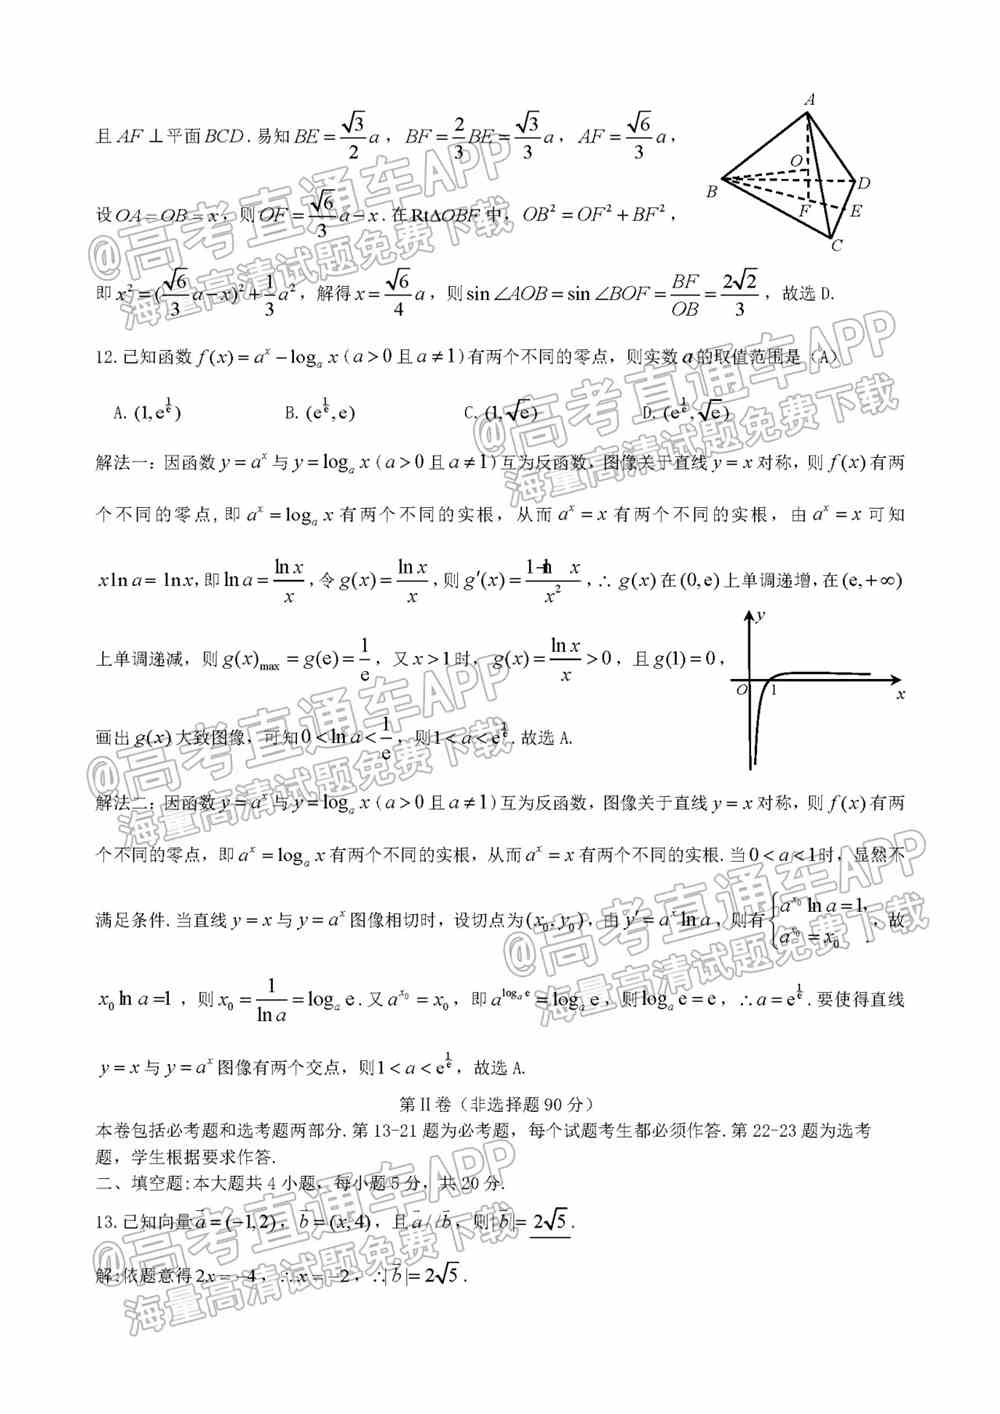 且AF⊥平面BCD.易知BE=√3/2 a，BF=2/3 BE=√3/3 a，AF=√6/3 a，
设OA=OB=x，则OF=√6/3 a−x.在Rt△OBF中，OB²=OF²+BF²，
A
O
B
D
F
E
C
即x²=(√6/3 a−x)²+1/3 a²，解得x=√6/4 a，则sin∠AOB=sin∠BOF=BF/OB=2√2/3，故选D.
12.已知函数f(x)=a^x−log_a x（a>0且a≠1)有两个不同的零点，则实数a的取值范围是（A）
A.(1,e^(1/e)) B.(e^(1/e),e) C.(1,√e) D.(e^(1/e),√e)
解法一：因函数y=a^x与y=log_a x（a>0且a≠1)互为反函数，图像关于直线y=x对称，则f(x)有两
个不同的零点,即a^x=log_a x有两个不同的实根，从而a^x=x有两个不同的实根，由a^x=x可知
xln a=ln x,即ln a=ln x/x,令g(x)=ln x/x,则g′(x)=1−ln x/x²,∴g(x)在(0,e)上单调递增,在(e,+∞)
上单调递减，则g(x)max=g(e)=1/e，又x>1时，g(x)=ln x/x>0，且g(1)=0，
y
O 1 x
画出g(x)大致图像，可知0<ln a<1/e，则1<a<e^(1/e).故选A.
解法二：因函数y=a^x与y=log_a x（a>0且a≠1)互为反函数，图像关于直线y=x对称，则f(x)有两
个不同的零点，即a^x=log_a x有两个不同的实根，从而a^x=x有两个不同的实根.当0<a<1时，显然不
满足条件.当直线y=x与y=a^x图像相切时，设切点为(x₀,y₀)，由y′=a^x ln a，则有{a^(x₀) ln a=1, a^(x₀)=x₀.，故
x₀ln a=1，则x₀=1/ln a=log_a e.又a^(x₀)=x₀，即a^(log_a e)=log_a e，则log_a e=e，∴a=e^(1/e).要使得直线
y=x与y=a^x图像有两个交点，则1<a<e^(1/e)，故选A.
第Ⅱ卷（非选择题90分）
本卷包括必考题和选考题两部分.第13-21题为必考题，每个试题考生都必须作答.第22-23题为选考
题，学生根据要求作答.
二、填空题:本大题共4小题，每小题5分，共20分.
13.已知向量a⃗=(−1,2)，b⃗=(x,4)，且a⃗//b⃗，则|b⃗|=2√5.
解:依题意得2x=−4，∴x=−2，∴|b⃗|=2√5.
@高考直通车APP
海量高清试题免费下载
@高考直通车APP
海量高清试题免费下载
@高考直通车APP
海量高清试题免费下载
@高考直通车APP
海量高清试题免费下载
@高考直通车APP
海量高清试题免费下载